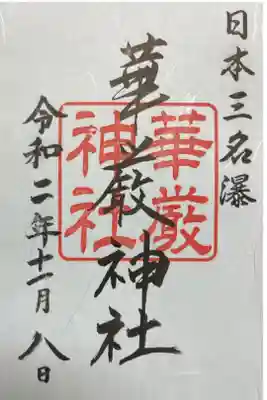 日本三名瀑
華厳神社
華厳
神社
令和二年十一月八日